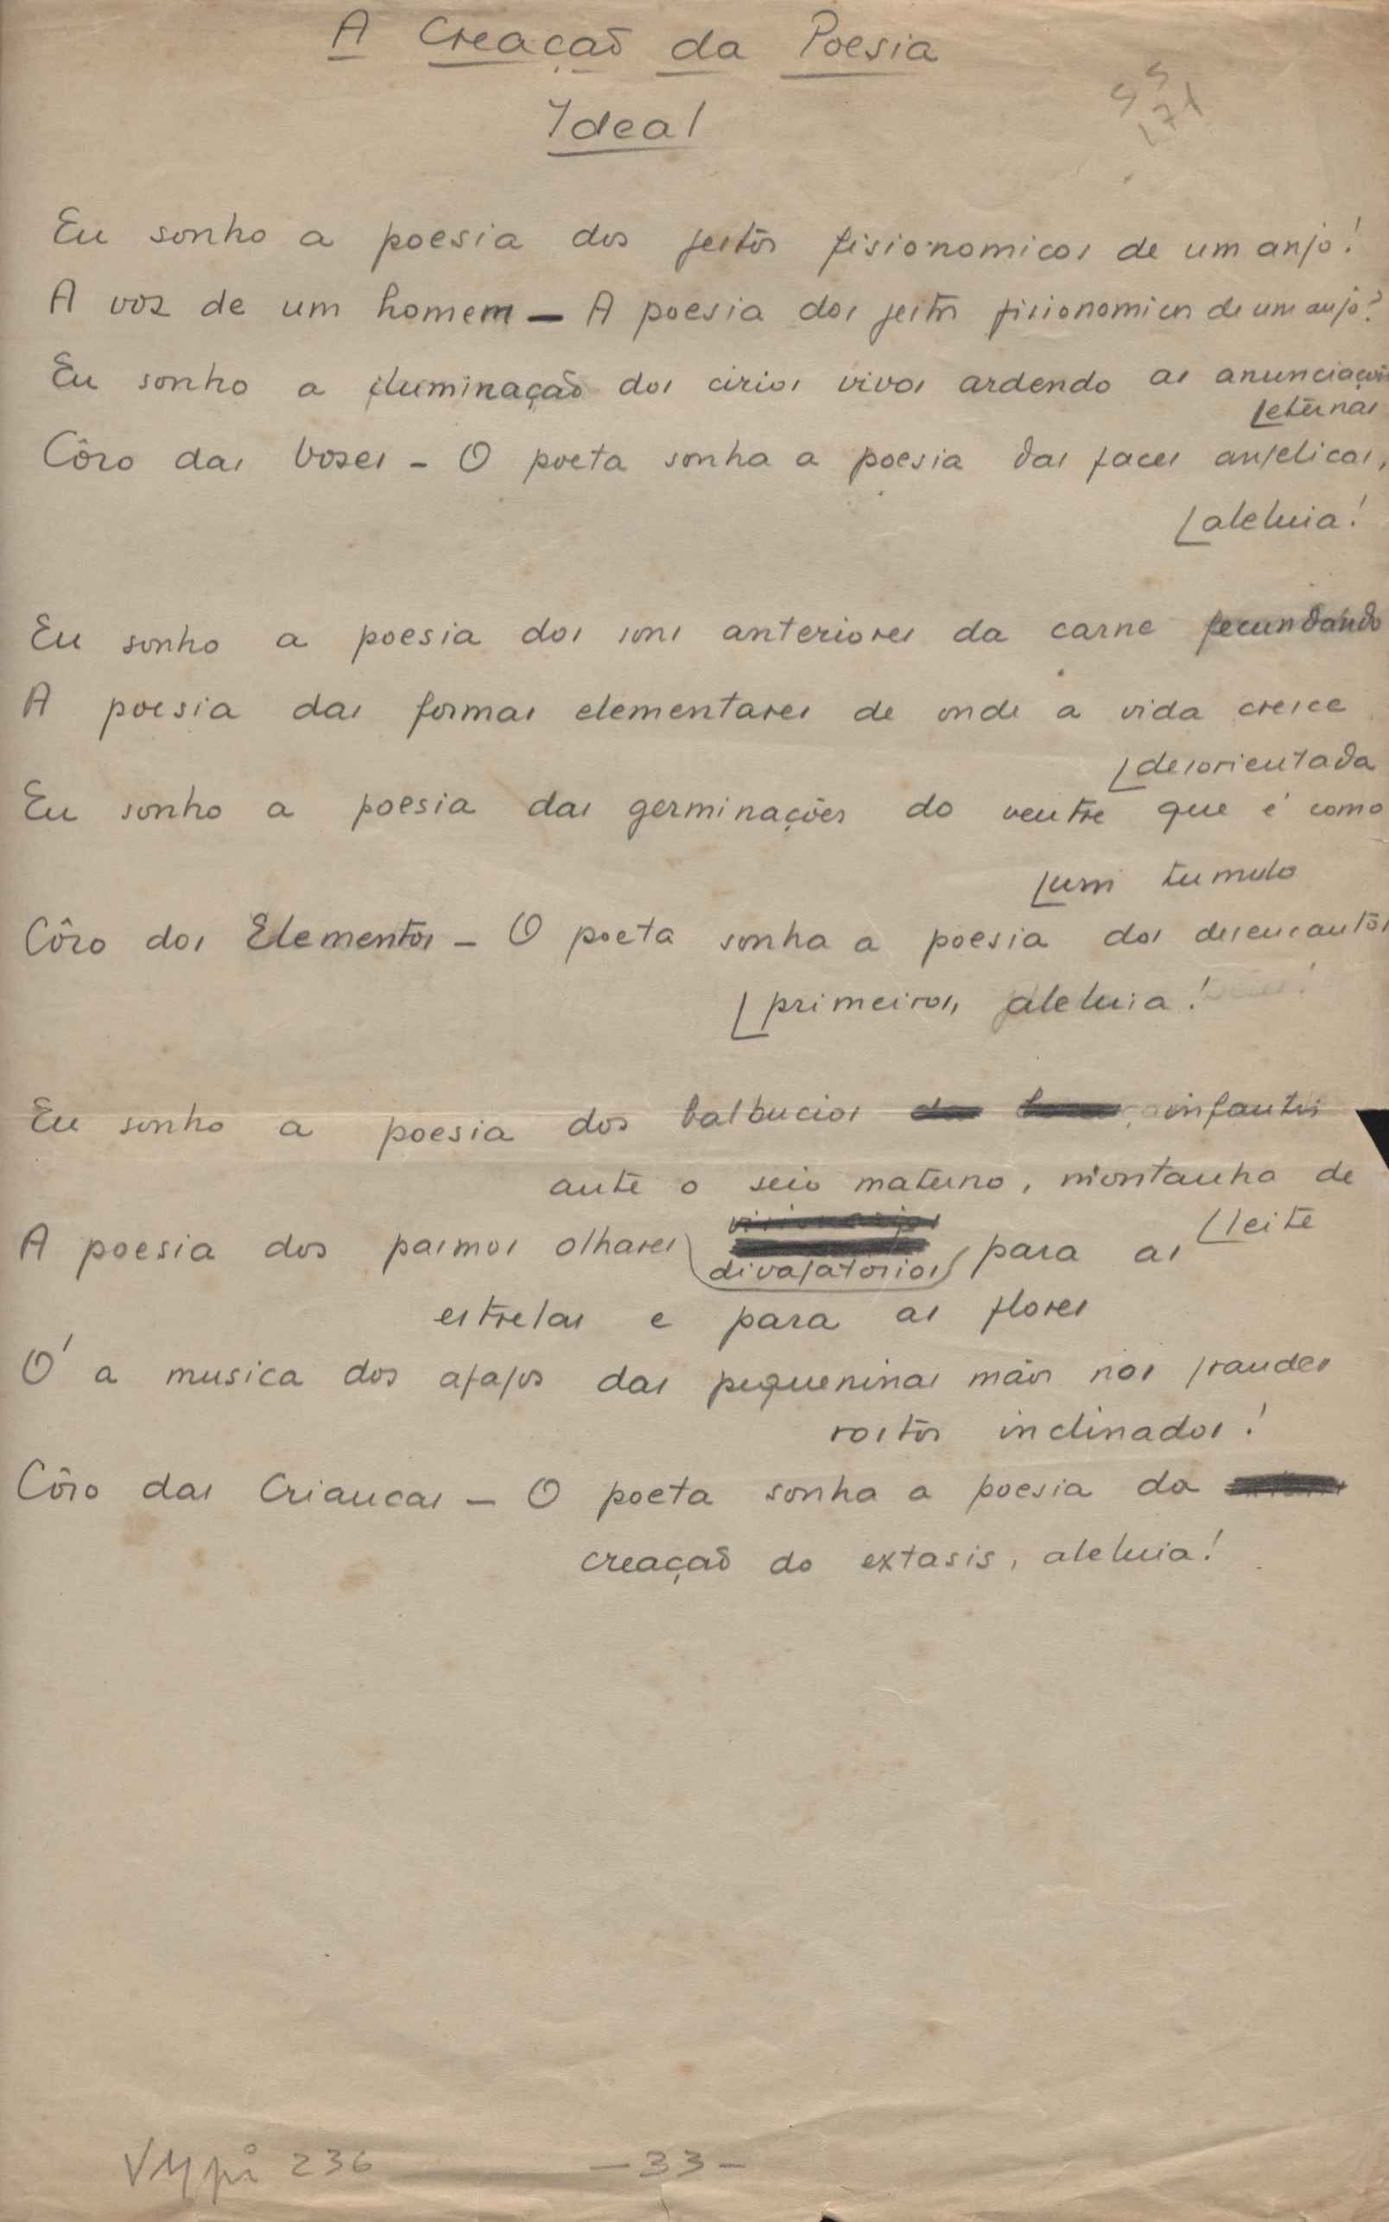 A Creação da Poesia
Ideal
Eu sonho a poesia dos jeitos fisionomicos de um anjo!
A voz de um homem — A poesia dos jeitos fisionomicos de um anjo?
Eu sonho a iluminação dos cirios vivos ardendo as anunciações
eternas
Côro das Vozes - O poeta sonha a poesia das faces angelicas,
aleluia!
Eu sonho a poesia dos sons anteriores da carne fecundando
A poesia das formas elementares de onde a vida cresce
desorientada
Eu sonho a poesia das germinações do ventre que é como
um tumulo
Côro dos Elementos - O poeta sonha a poesia dos desencantos
primeiros, aleluia!
Eu sonho a poesia dos balbucios infantis
ante o seio materno, montanha de
leite
A poesia dos pasmos olhares divagatorios para as
estrelas e para as flores
O' a musica dos afagos das pequeninas mãos nos grandes
rostos inclinados!
Côro das Criancas - O poeta sonha a poesia da
creação do extasis, aleluia!
236
- 33 -